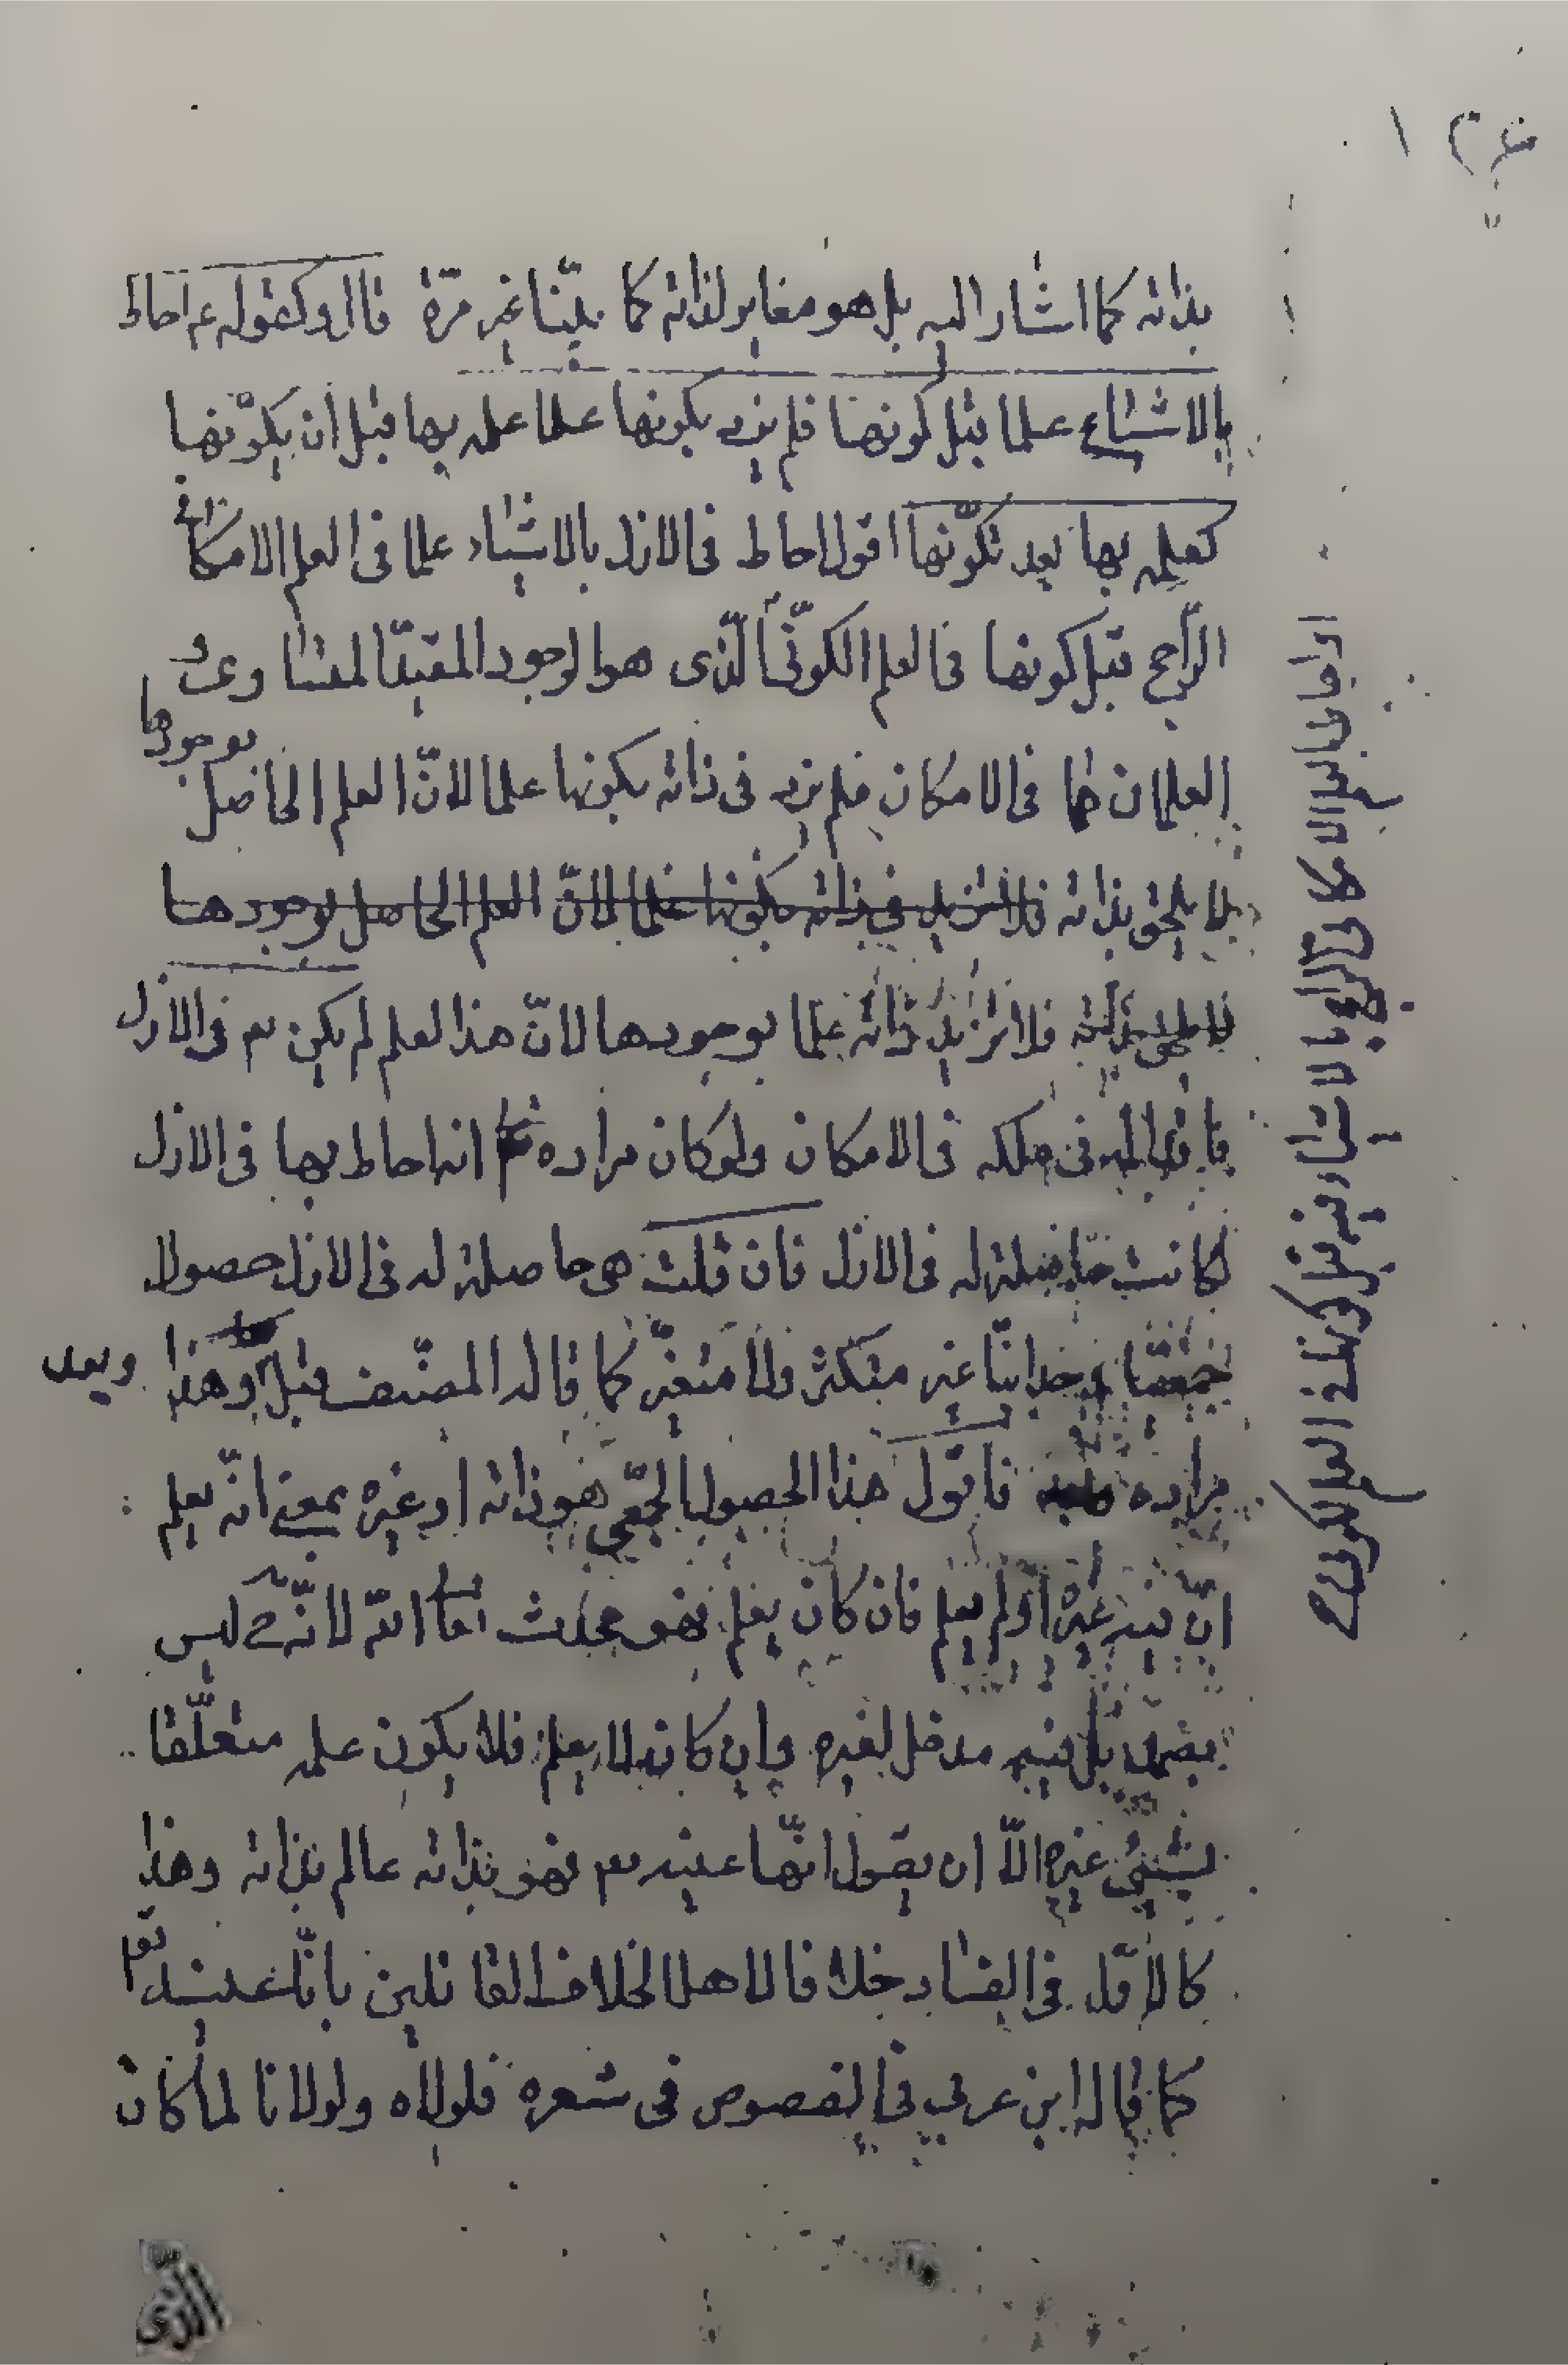 بذاته كما اشار اليه بل هو مغاير لذاته كما بيّنا غير مرّة قال وكقوله ع احاط
بالاشياء علما قبل كونها فلم يزدد بكونها علما علمه بها قبل ان يكوّنها
كعلمه بها بعد تكوّنها اقول احاط فى الازل بالاشياء علما فى العلم الامكانى
الرّاجح قبل كونها فى العلم الكونىّ الّذى هو الوجود المقيّد المتساوى و
العلمان هما فى الامكان فلم يزدد فى ذاته بكونها علما لانّ العلم الحاصل بوجودها
لا يلحق بذاته فلا تزيد فى ذاته بكونها علما لانّ العلم الحاصل بوجودها
فلا تزيد ذاته علما بوجودها لانّ هذا العلم لم يكن فى الازل
فى ملكه فى الامكان ولو كان مراده انه احاط بها فى الازل
لكانت حاصلة له فى الازل فان قلت هى حاصلة له فى الازل حصولا
جمعيّا وحدانيّا غير متكثّر ولا متغيّر كما قاله المصنّف قبل وهذا
مراده فاقول هذا الحصول الجمعى هو ذاته او غيره بمعنى انّه يعلم
انّ فيه غيره او لم يعلم فان كان يعلم فهو محدث لانّه ليس
بصمد بل فيه مدخل لغيره وان كان لا يعلم فلا يكون علمه متعلّقا
بشىء غيره الّا ان يقول انّها عينه فهو بذاته عالم بذاته وهذا
كالاوّل فى الفساد خلافا لاهل الخلاف القائلين بانّا عينه تعا
كما قاله ابن عربي فى الفصوص فى شعره فلولاه ولولانا لما كان